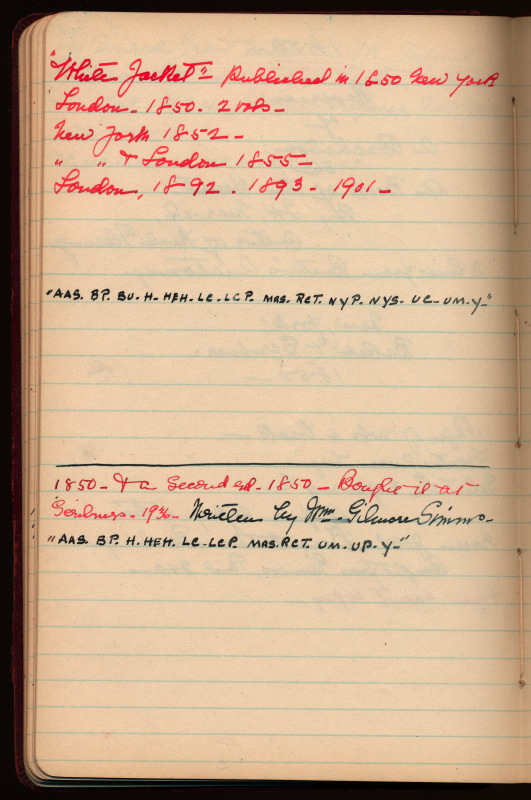 "White Jacket" Published in 1850 New York
London - 1850 - 2 vols -
New York 1852 -
" " & London 1855 -
London, 1892 . 1893 - 1901 -
"AAS. BP. BU. H. HEH. LC. LCP. MAS. RCT. NYP. NYS. UC. UM. Y."
1850 - & a Second ed. 1850 - Bought it at
Scribners - 1936 - Written by Wm. Gilmore Simms -
"AAS. BP. H. HEH. LC. LCP. MAS. RCT. UM. UP. Y -"